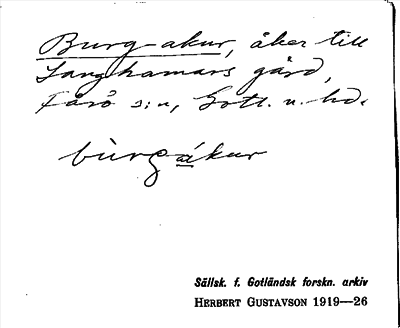 Burg-akur, åker till
Langhamars gård,
Fårö s:n, Gotl. n. hd.
bùrgákur
Sällsk. f. Gotländsk forskn. arkiv
HERBERT GUSTAVSON 1919—26